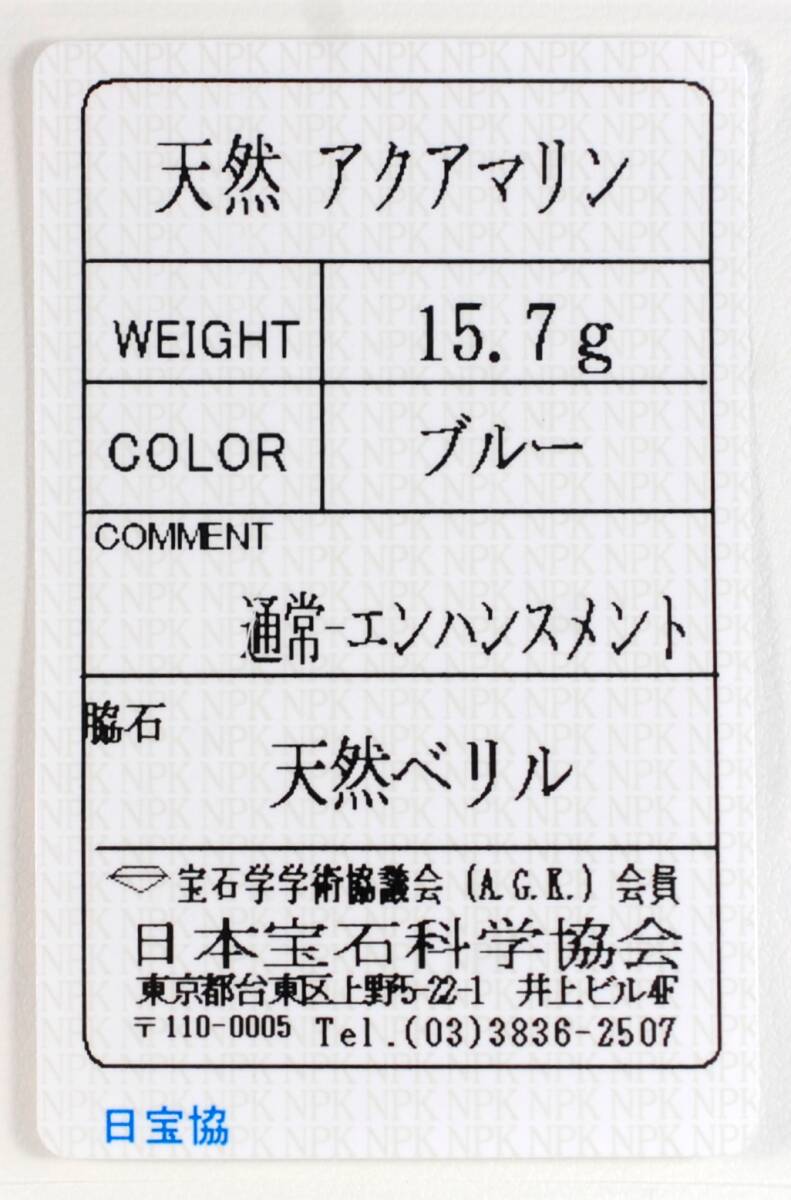 天然 アクアマリン
WEIGHT 15.7g
COLOR ブルー
COMMENT
通常-エンハンスメント
脇石
天然ベリル
宝石学学術協議会 (A.G.K.) 会員
日本宝石科学協会
東京都台東区上野5-22-1 井上ビル4F
〒110-0005 Tel.(03)3836-2507
日宝協